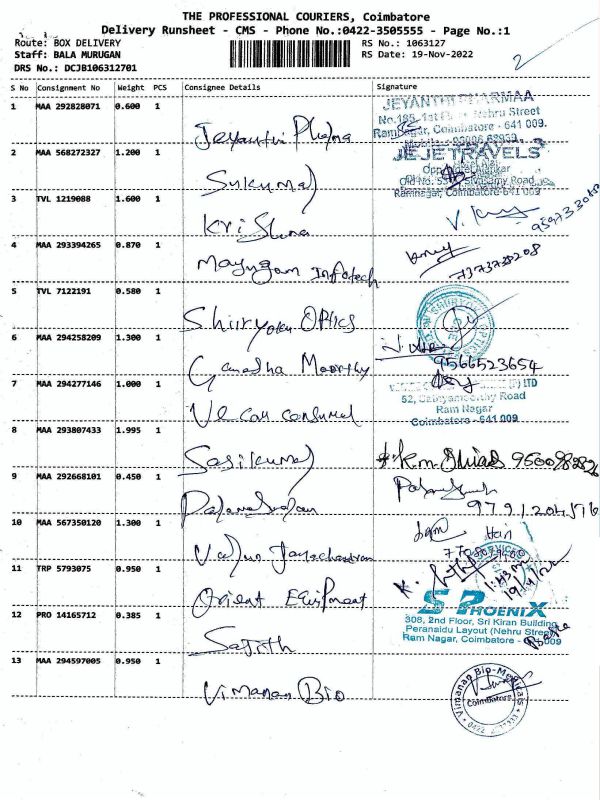 THE PROFESSIONAL COURIERS, Coimbatore
Delivery Runsheet - CMS - Phone No.:0422-3505555 - Page No.:1
Route: BOX DELIVERY
RS No.: 1063127
Staff: BALA MURUGAN
RS Date: 19-Nov-2022
DRS No.: DCJB106312701
2
S No Consignment No Weight PCS Consignee Details Signature
1 MAA 292828071 0.600 1
Jeyanthi Pharma
JEYANTHI PHARMAA
Nehru Street
Ramnagar, Coimbatore - 641 009.
2 MAA 568272327 1.200 1
Sukumar
JEJE TRAVELS
Ramnagar, Coimbatore-641 009
3 TVL 1219088 1.600 1
Krishna
4 MAA 293394265 0.870 1
Mayugam Infotech
7373730208
5 TVL 7122191 0.580 1
Shuryoku Optics
6 MAA 294258209 1.300 1
Moorthy
9566523654
7 MAA 294277146 1.000 1
Ve Can
(P) LTD
52, Sathyamoorthy Road
Ram Nagar
Coimbatore - 641 009
8 MAA 293807433 1.995 1
Sasikumar
9 MAA 292668101 0.450 1
10 MAA 567350120 1.300 1
Jayachandran
11 TRP 5793075 0.950 1
Orient Equipment
12 PRO 14165712 0.385 1
Sajith
S PHOENIX
308, 2nd Floor, Sri Kiran Building
Peranaidu Layout (Nehru Street)
Ram Nagar, Coimbatore
13 MAA 294597005 0.950 1
Vimanan Bio
Vimanan Bio-Medicals
Coimbatore